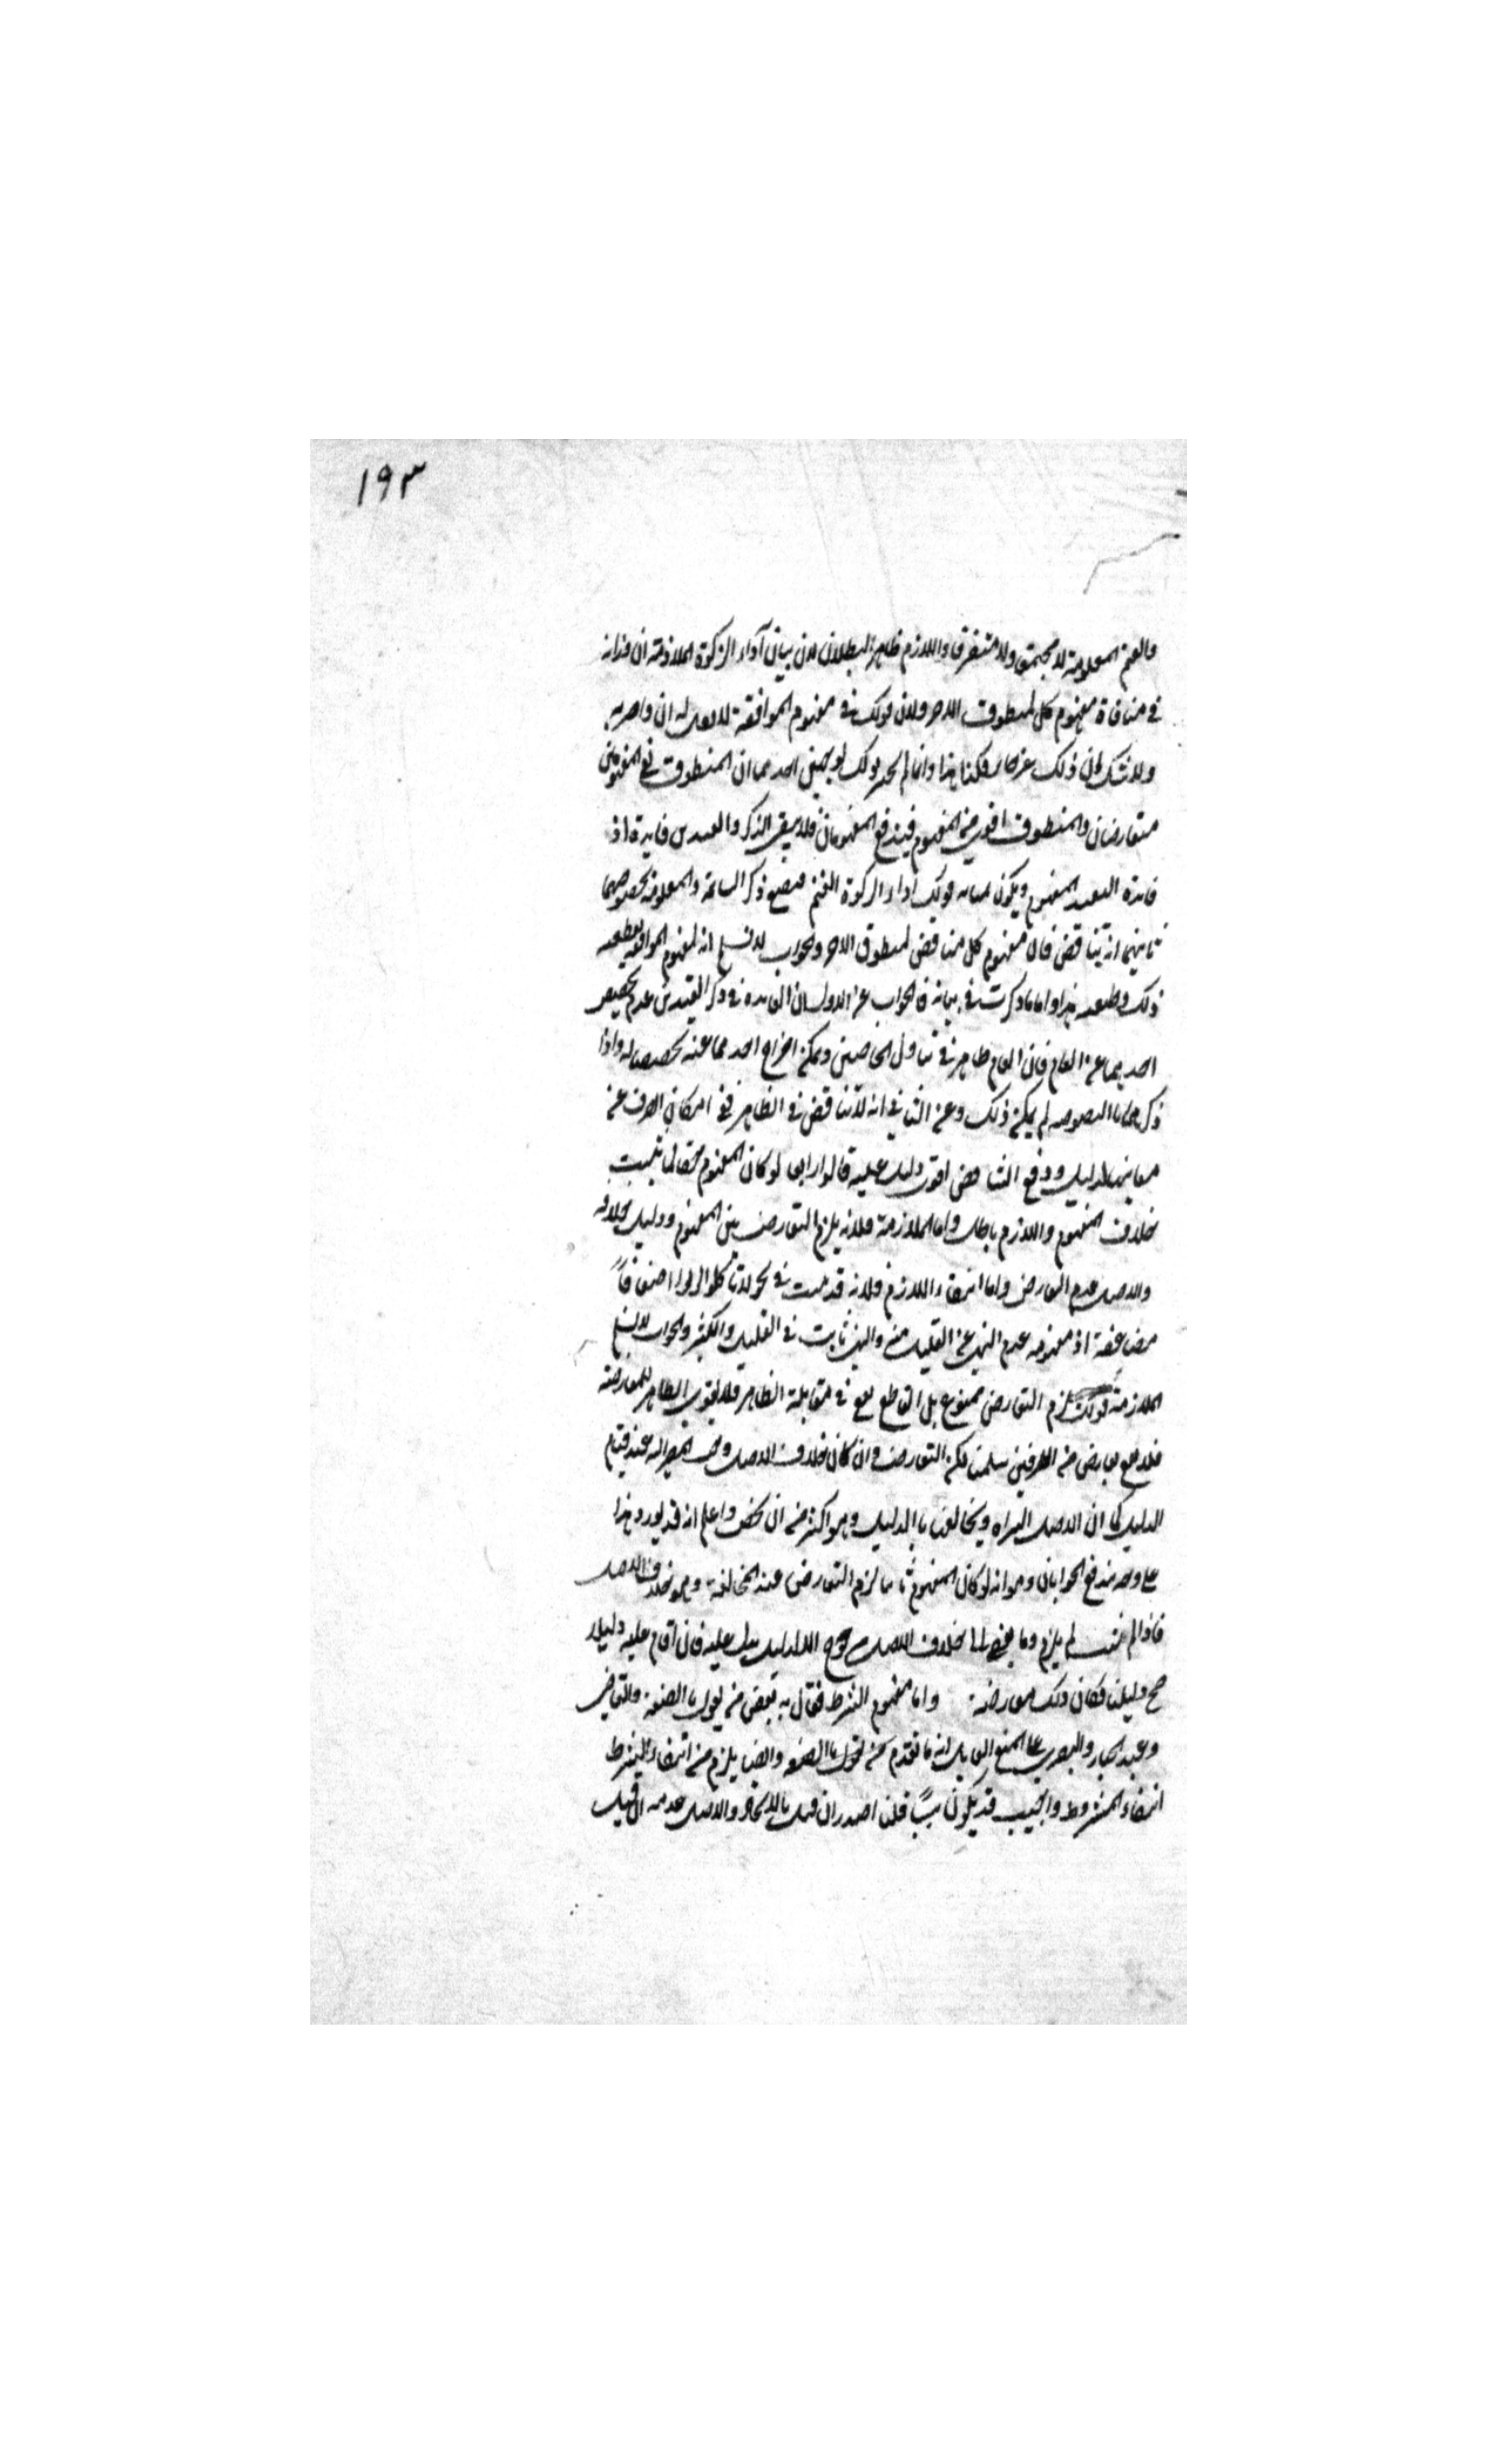 ١٩٣
والغنم المعلوفة لا مجتمعة ولا متفرقا واللازم ظاهر البطلان لان بيان آداء الزكوة الملازمة ان وزانه
في منافاة مفهوم كل لمنطوق الاخر وزان قولك في مفهوم الموافقة لا تقل له اف واضربه
ولا شك ان ذلك غير جايز فكذا هذا وانما لم يجز ذلك لوجهين احدهما ان المنطوق في المفهومين
متعارضان والمنطوق اقوى من المفهوم فيندفع المفهومان فلا يبقى لذكر القيدين فايدة اذ
فايدة التقييد المفهوم ويكون بمثابه قولك اداء الزكوة الغنم فيضيع ذكر السائمة والمعلوفة بخصوصهما
ثانيهما انه يتناقض فان مفهوم كل مناقض لمنطوق الاخر والجواب لا نسلم انه لمفهوم الموافقة لقطعية
ذلك وظنية هذا واما ما ذكرت في بيانه فالجواب عن الاول ان الفايدة في ذكر القيدين عدم تخصيص
احدهما عن العام فان العام ظاهر في تناول الخاصين ويمكن اخراج احدهما عنه تخصيصا له واذا
ذكرهما بالنصوصية لم يمكن ذلك وعن الثاني انه لا تناقض في الظاهر مع امكان الصرف عن
معانيها لدليل ودفع التناقض اقوى دليل عليه قالوا رابعا لو كان المفهوم حقا لما ثبت
خلاف المفهوم واللازم باطل واما الملازمة فلانه يلزم التعارض بين المفهوم ودليل خلافه
والاصل عدم التعارض واما انتفاء اللازم فلانه قد ثبت في نحو لا تاكلوا الربوا اضعافا
مضاعفة اذ مفهومه عدم النهى عن القليل منه والنهى ثابت في القليل والكثير والجواب لا نسلم
الملازمة قولك يلزم التعارض ممنوع بل القاطع يقع في مقابلة الظاهر فلا يقوى الظاهر للمعارضة
فلا يقع تعارض من الطرفين سلمنا لكن التعارض وان كان خلاف الاصل وجب المصير اليه عند قيام
الدليل كما ان الاصل البراة ويخالف بالدليل وهو اكثر من ان يحصى واعلم انه قد يورد هذا
على وجه يندفع الجوابان وهو انه لو كان المفهوم ثابتا لزم التعارض عند المخالفة وهو خلاف الاصل
فاذا لم يثبت لم يلزم وما يفضي الى خلاف الاصل مرجوح الا لدليل يدل عليه فان اقام عليه دليلا
صح دليلنا فكان ذلك معارضة واما مفهوم الشرط فقال به بعض من يقول بالصفة والقاضي
وعبد الجبار والبصري على المنع القايل به ما تقدم من يقول بالصفة وايضا يلزم من انتفاء الشرط
انتفاء المشروط واجيب قد يكون سببا قلنا اجدر ان قيل بالاتحاد والاصل عدمه ان قيل